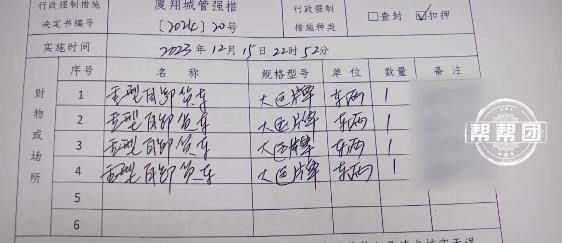 行政强制措施 厦翔城管强措 行政强制 □查封 ☑扣押
决定书编号 〔2024〕20号 措施种类
实施时间 2023年12月15日22时52分
财物或场所 序号 名称 规格型号 单位 数量 备注
1 重型自卸货车 大型牌 车辆 1
2 重型自卸货车 大型牌 车辆 1
3 重型自卸货车 大型牌 车辆 1
4 重型自卸货车 大型牌 车辆 1
5
6
帮帮团